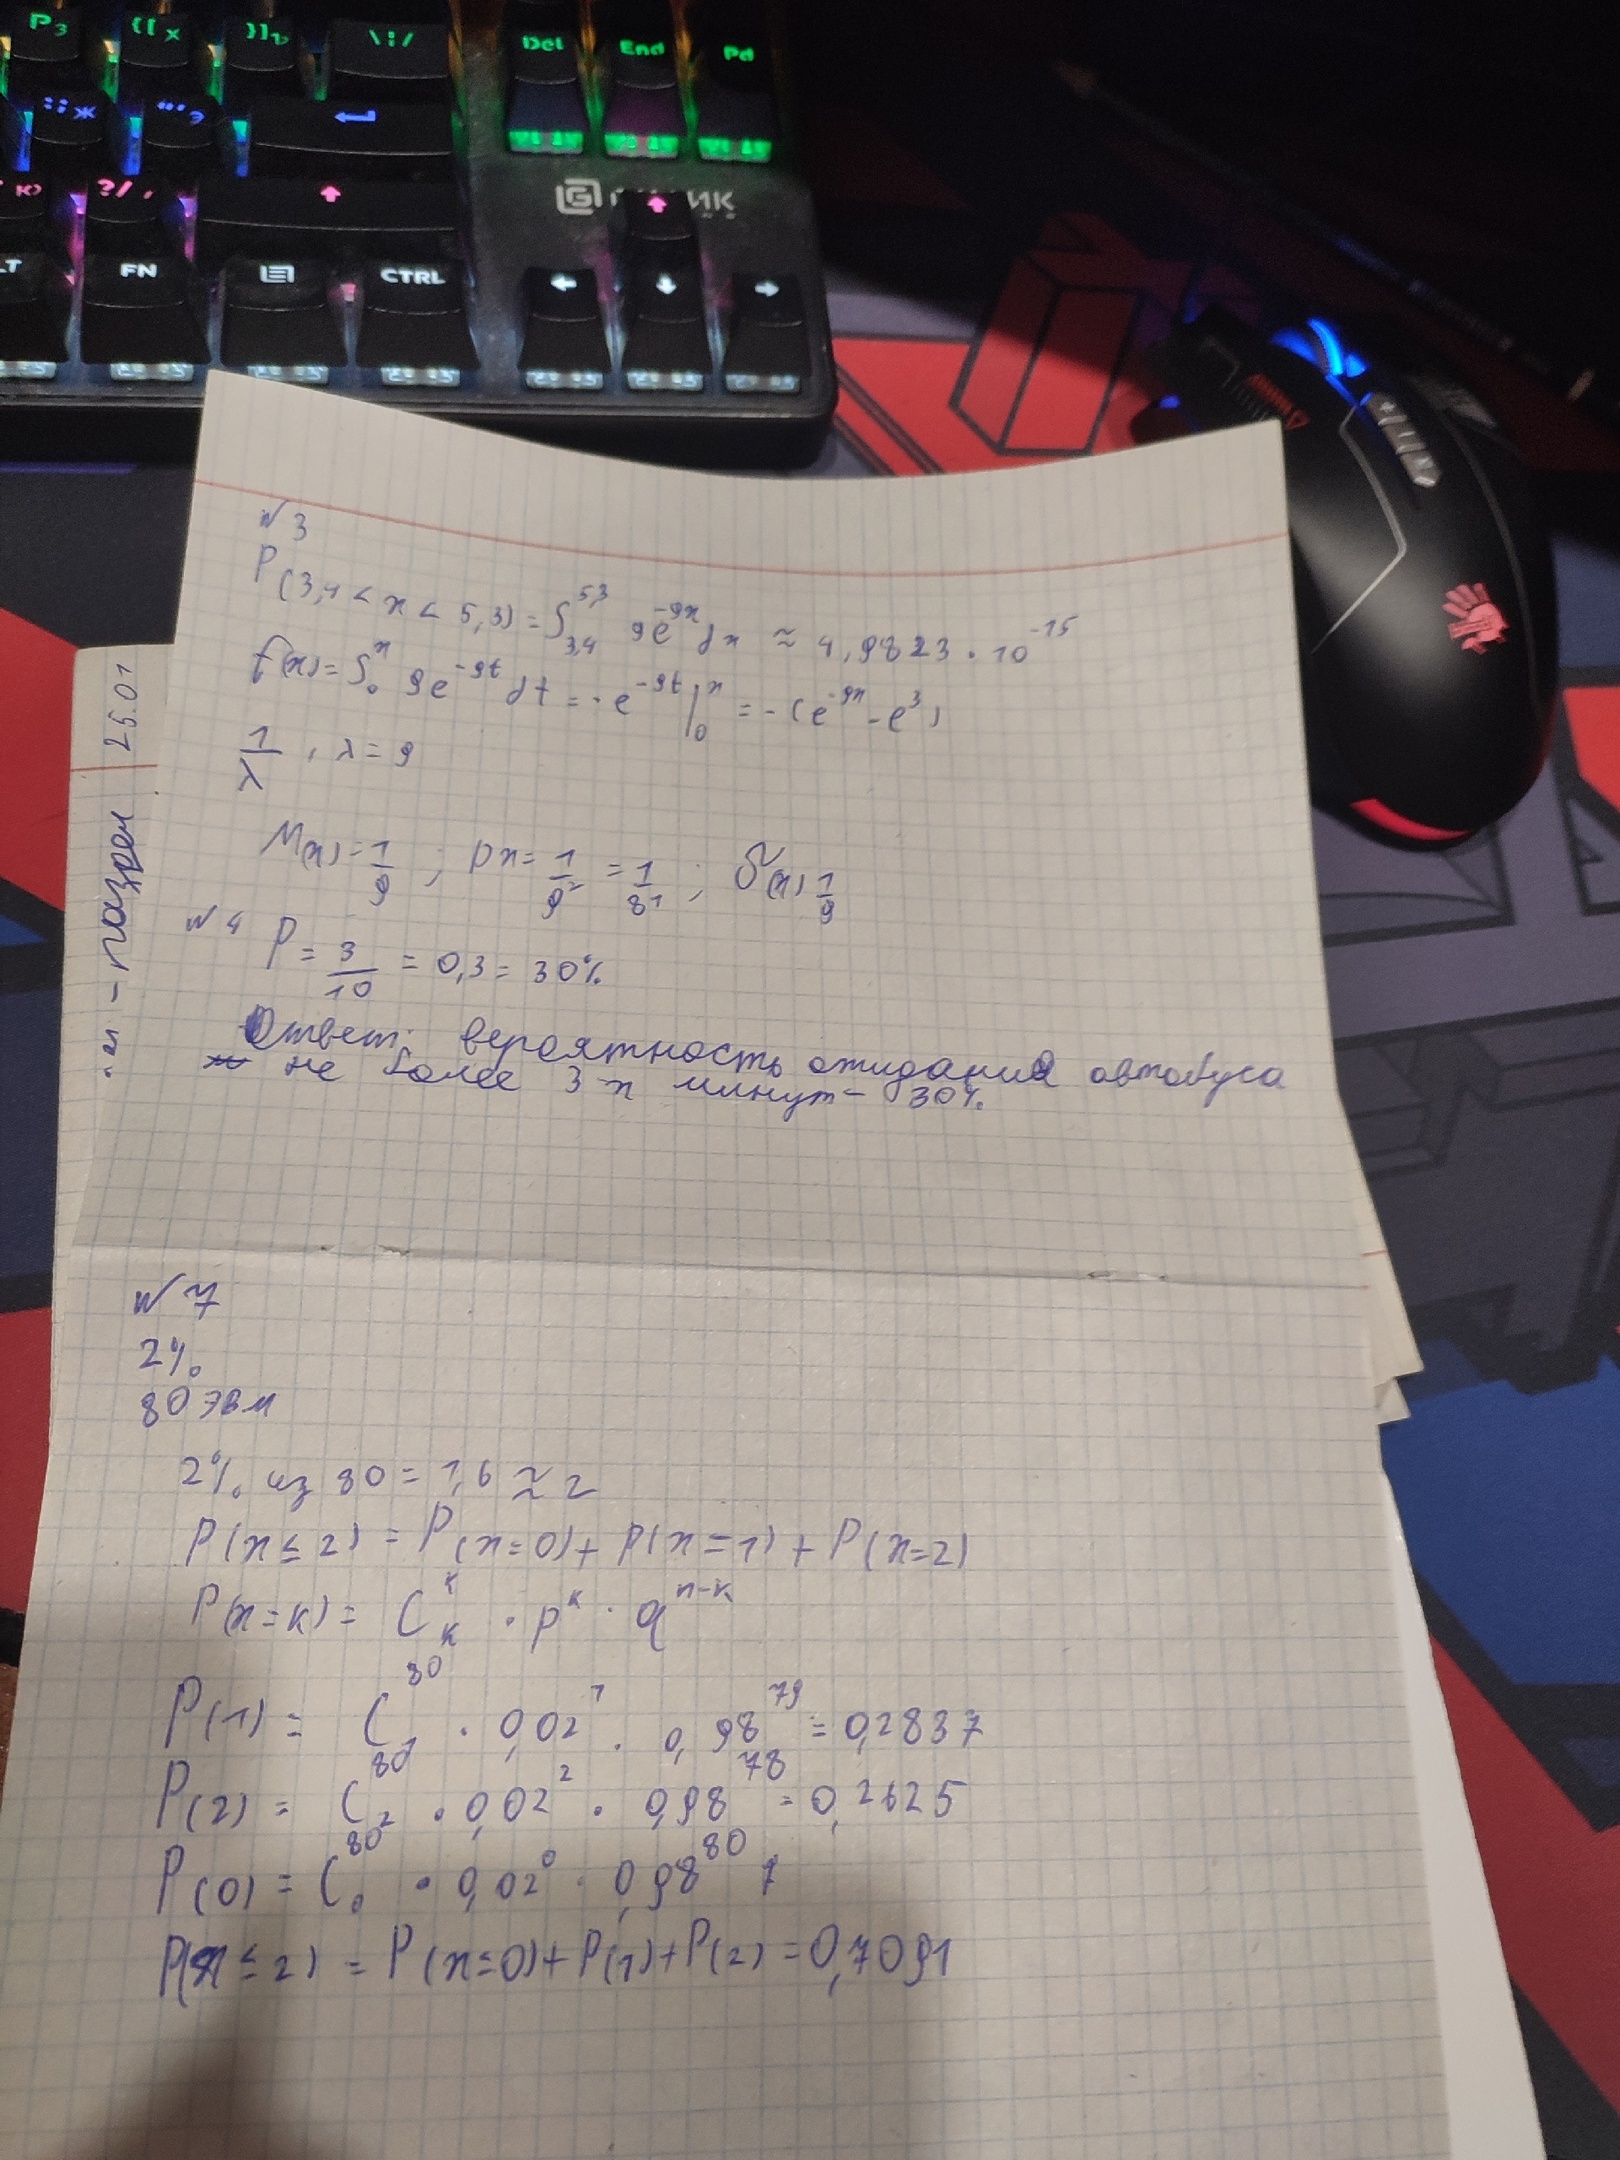 Р З
{[ Х
}] Ъ
\ | /
Del
End
Pd
: ; Ж
" ' Э
?/ ,
FN
CTRL
25.01
№ 3
P(3,4 < x < 5,3) = ∫_{3,4}^{5,3} 9e^{-9x} dx ≈ 4,9823 · 10^{-15}
f(x) = ∫_0^x 9e^{-9t} dt = -e^{-9t} |_0^x = -(e^{-9x} - e^3)
1/λ , λ = 9
M(x) = 1/9 ; Dx = 1/9² = 1/81 ; σ(x) 1/9
№ 4 P = 3/10 = 0,3 = 30%
Ответ: вероятность ожидания автобуса
не более 3-х минут - 30%.
№ 7
2%
80 ЭВМ
2% из 80 = 1,6 ≈ 2
P(x ≤ 2) = P(x=0) + P(x=1) + P(x=2)
P(x=k) = C_k^k · p^k · q^{n-k}
P(1) = C_1^{80} · 0,02^1 · 0,98^{79} = 0,2837
P(2) = C_2^{80} · 0,02^2 · 0,98^{78} = 0,2625
P(0) = C_0^{80} · 0,02^0 · 0,98^{80} 1
P(x ≤ 2) = P(x=0) + P(1) + P(2) = 0,7091